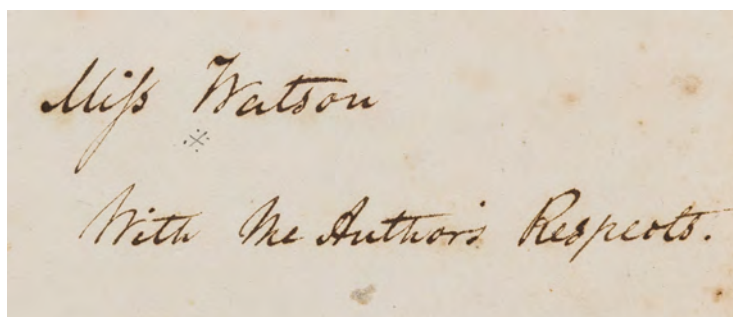 Miſs Watson
※
With the Author's Respects.